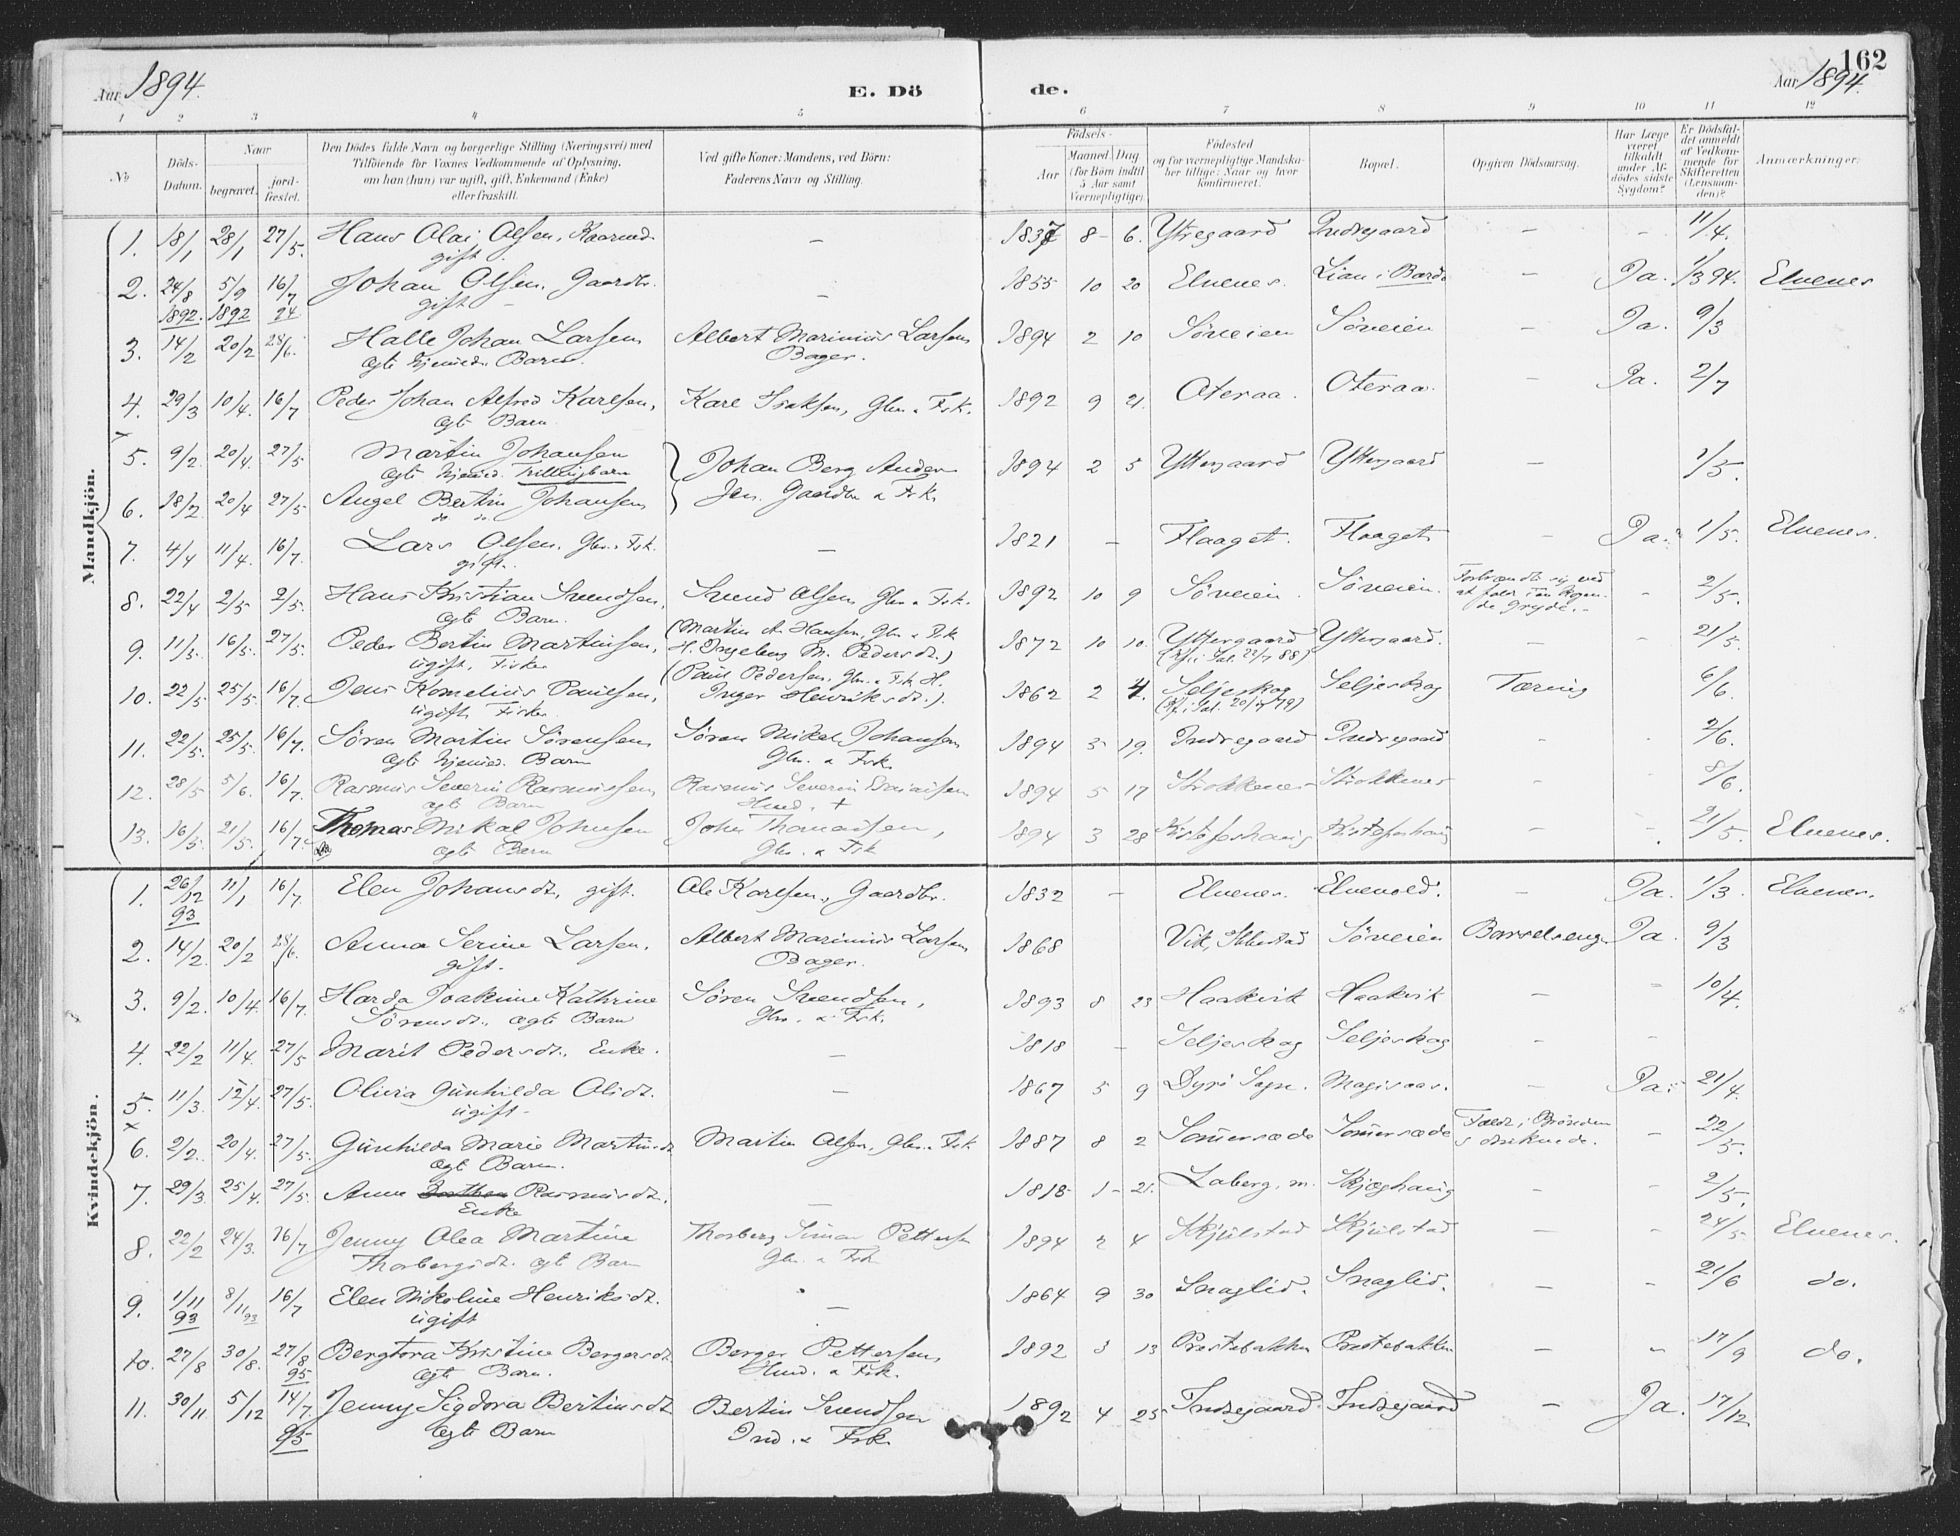 162
Aar 1894. E. Dö de. Aar 1894.
1 2 3 4 5 6 7 8 9 10 11 12
No Döds-Datum. Naar begravet. jord-fæstet. Den Dödes fulde Navn og borgerlige Stilling (Næringsvei) med Tilföiende for Voxnes Vedkommende af Oplysning, om han (hun) var ugift, gift, Enkemand (Enke) eller fraskilt. Ved gifte Koner: Mandens, ved Börn: Faderens Navn og Stilling. Födsels- Aar Maaned Dag (for Börn indtil 5 Aar samt Værnepligtige) Födested og for værnepligtige Mandskaber tillige: Naar og hvor konfirmeret. Bopæl. Opgiven Dödsaarsag. Har Læge været tilkaldt under Afdödes sidste Sygdom? Er Dödsfaldet anmeldt af Vedkommende for Skifteretten (Lensmanden)? Anmærkninger.
Mandkjön.
1. 18/1 28/1 27/5. Hans Olai Olsen, Kaarmd. — 1837 8 6. Ytregaard Indregaard — - 11/4.
gift.
2. 24/8 5/9 16/7 Johan Olsen, Gaardbr. — 1855 10 20 Elvenes. Lian i Bardo — Ja. 1/3 94. Elvenes
1892. 1892 94 gift -
3. 14/2 20/2 28/6. Halle Johan Larsen Albert Marinius Larsen 1894 2 10 Söveien Söveien - Ja. 9/3
egte hjemmed. Barn. Bager.
4. 29/3 10/4. 16/7 Peder Johan Alfred Karlsen, Karl Isaksen, Gbr. & Fsk. 1892 9 21. Oteraa. Oteraa. - Ja. 2/7
egte Barn
5. 9/2. 20/4. 27/5 Martin Johansen Johan Berg Ander- 1894 2 5 Yttergaard Yttergaard — 1/5.
egte hjemmed. Trillingbarn
6. 18/2. 20/4 27/5 Angel Bertin Johansen sen. Gaardbr & Fsk.
do do.
7. 4/4 11/4. 16/7. Lars Olsen, Gbr. Fsk. — 1821 - Flaaget. Flaaget - Ja. 1/5. Elvenes.
gift.
8. 22/4 2/5 2/5. Hans Kristian Svendsen, Svend Olsen Gbr. & Fsk. 1892 10 9 Söveien. Söveien. Forbrændte sig ved at falde i en kogende gryde. - 2/5.
egte Barn.
9. 11/5. 16/5. 27/5. Peder Bertin Martinsen, (Martin A. Hansen, Gbr & Fsk 1872 10 10. Yttergaard Yttergaard. — - 21/5.
ugift, Fisker H. Ingeborg M. Pedersdt.)
10. 22/5 25/5 16/7. Jens Kornelius Paulsen, (Paul Pedersen, Gbr. & Fsk H. 1862 2 4. Seljeskog Seljeskog Tæring 6/6.
ugift Fisker Inger Henriksdt.).
11. 22/5. 25/5. 16/7. Sören Martin Sörensen Sören Mikal Johansen 1894 5 19. Indregaard Indregaard - 2/6.
egte hjemmed. Barn Gbr. & Fsk.
12. 28/5 5/6. 16/7. Rasmus Severin Rasmussen, Rasmus Severin Esaiassen 1894 5 17 Strokkenes Strokkenes - 8/6.
egte Barn Husmd. +
13. 16/5 21/5. 16/7. Thomas Mikal Johnsen John Thomassen, 1894 3 28 - 21/5. Elvenes.
egte Barn Gbr. & Fsk
Kvindekjön.
1. 26/12 11/1 16/7 Elen Johansdt, gift. Ole Karlsen, Gaardbr. 1832 - Elvenes. Elvevold. - Ja. 1/3. Elvenes.
93
2. 14/2. 20/2 28/6. Anna Serine Larsen. Albert Marinius Larsen 1868 Vik, Ibbestad Söveien Barselseng. Ja. 9/3
gift. Bager.
3. 9/2. 10/4. 16/7. Harda Joakime Kathrine Sören Svendsen, 1893 8 23 Haakvik Haakvik — - 10/4.
Sörensdt. egte Barn Gbr. & Fsk.
4. 22/2 11/4. 27/5 Marit Pedersdt. Enke. — 1818 - Seljeskog Seljeskog - -
5. 11/3. 12/4. 27/5. Olivia Gunhilda Olsdt. — 1867 5 9 Dyrö Sogn. - Ja. 21/4.
ugift -
6. 2/2. 20/4. 27/5. Gunhilda Marie Martinsdt Martin Olsen, Gbr. & Fsk 1887 8 2 Sommersæde Sommersæde Faldt i Brönden & druknede. - 22/5.
egte Barn.
7. 29/3. 25/4. 27/5. Anne Rasmusdt. — 1818 1 21. Laberg, m. Skjæghaug - - 2/5.
Enke
8. 22/2 24/3. 16/7 Jenny Olea Martine Thorberg Simon Pettersen 1894 2 4 Skjulstad Skjulstad — - 24/5 Elvenes.
Thorbergsdt. egte Barn Gbr. & Fsk
9. 1/11 8/11 93 16/7 Elen Nikoline Henriksdt. — 1864 9 30 Snaglid. Snaglid. — - 21/6 do.
93 ugift
10. 27/8 30/8. 27/8 Bergtora Kristine Bergersdt Berger Pettersen 1892 3 13 Prestebakken Prestebakken — - 17/9 do.
95 egte Barn. Husmd. & Fsk.
11. 30/11 5/12 14/7. Jenny Sigdora Bertinsdt Bertin Svendsen 1892 4 25 Indregaard. Indregaard — Ja. 17/12.
95 egte Barn Ind. & Fsk.